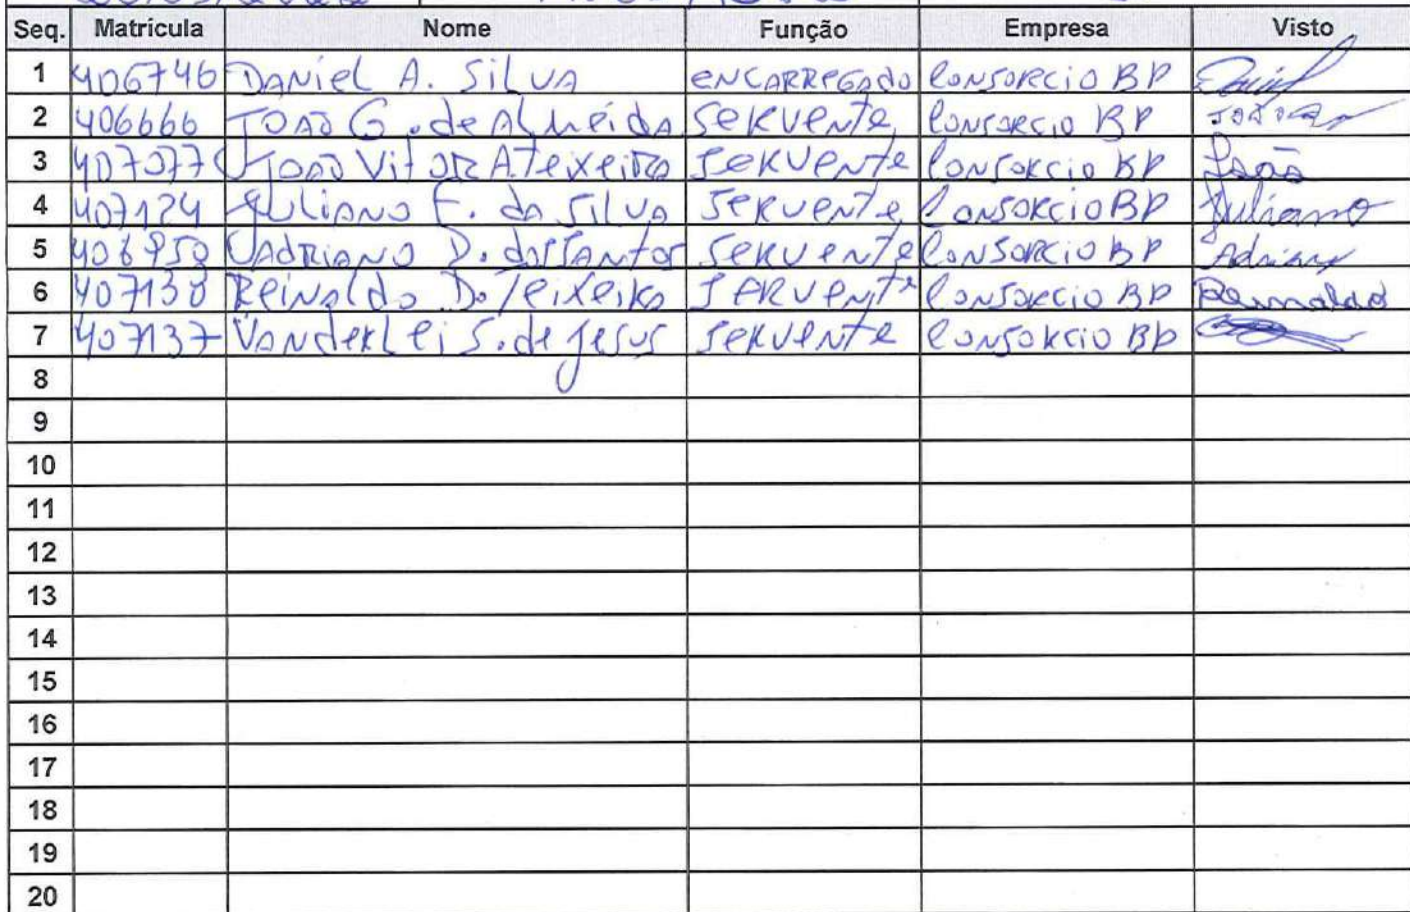 Seq. Matrícula Nome Função Empresa Visto
1 406746 DANIEL A. SILVA ENCARREGADO CONSORCIO BP
2 406666 JOAO G. de ALMEIDA SERVENTE CONSORCIO BP
3 407077 JOAO VITOR A TEIXEIRA SERVENTE CONSORCIO BP João
4 407124 JULIANO F. da SILVA SERVENTE CONSORCIO BP Juliano
5 ADRIANO D. dos SANTOS SERVENTE CONSORCIO BP Adriano
6 407130 REINALDO D. TEIXEIRA SERVENTE CONSORCIO BP Reinaldo
7 407137 VANDERLEI S. de JESUS SERVENTE CONSORCIO BP
8
9
10
11
12
13
14
15
16
17
18
19
20